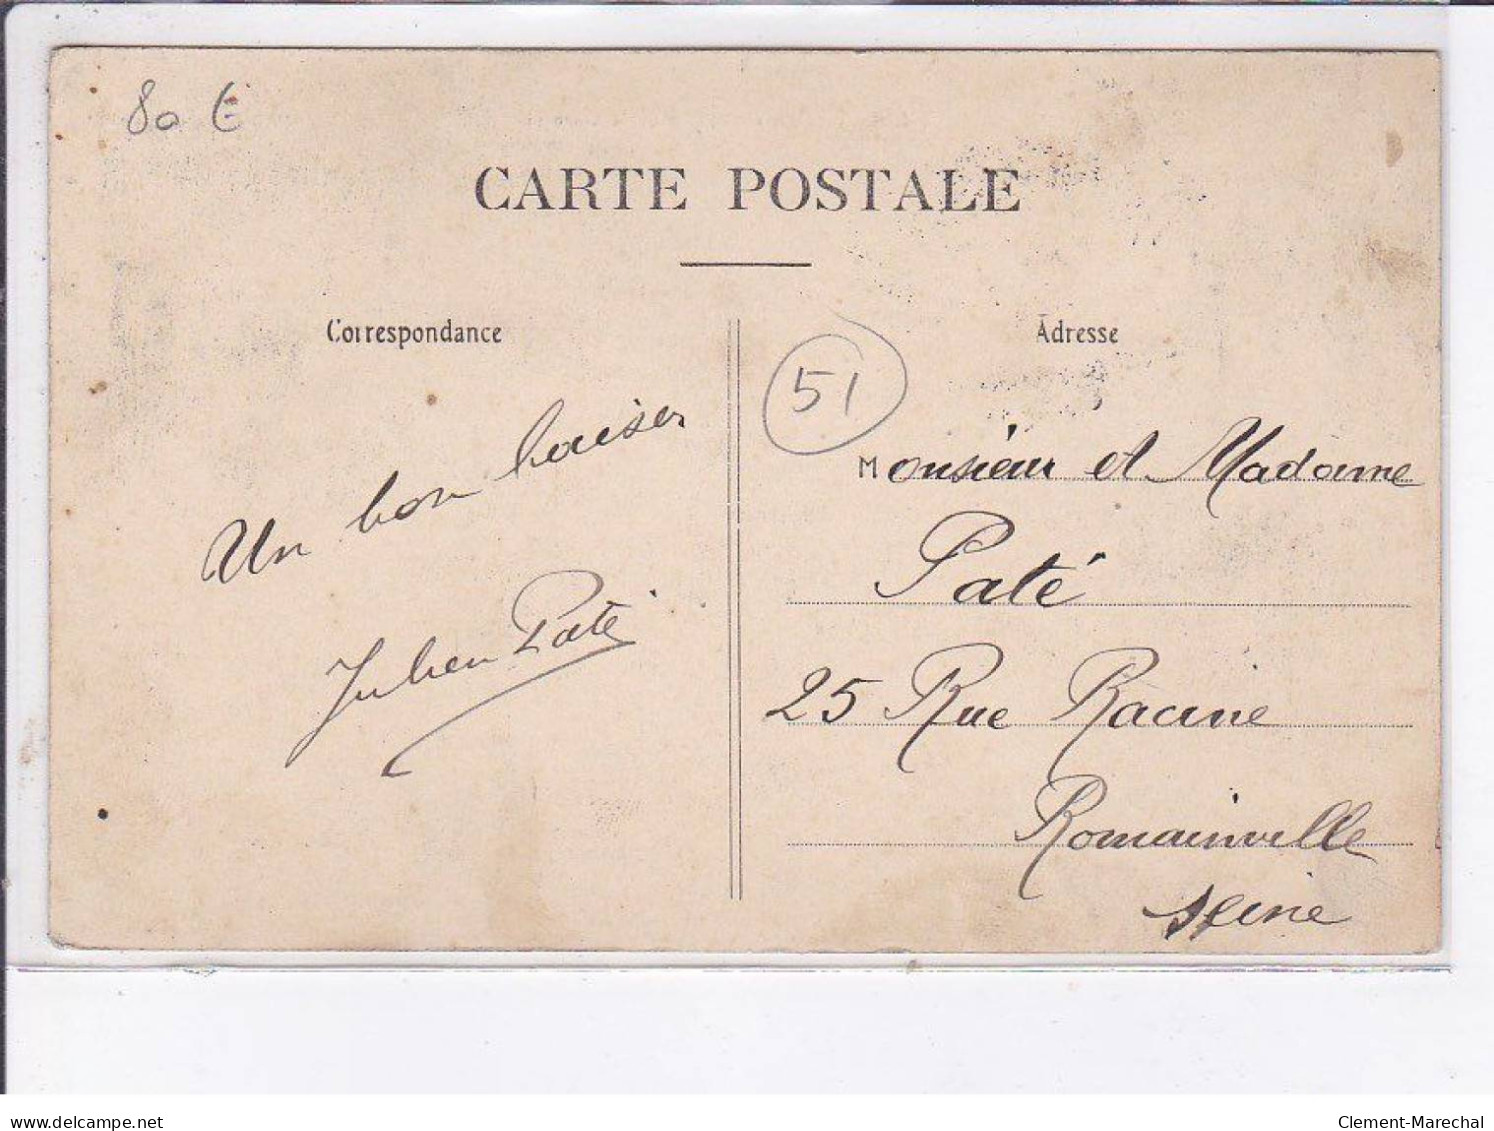 80 €
CARTE POSTALE
Correspondance
Un bon baiser
Julien Paté
Adresse
51
Monsieur et Madame
Paté
25 Rue Racine
Romainville
Seine
delcampe.net
Clement-Marechal